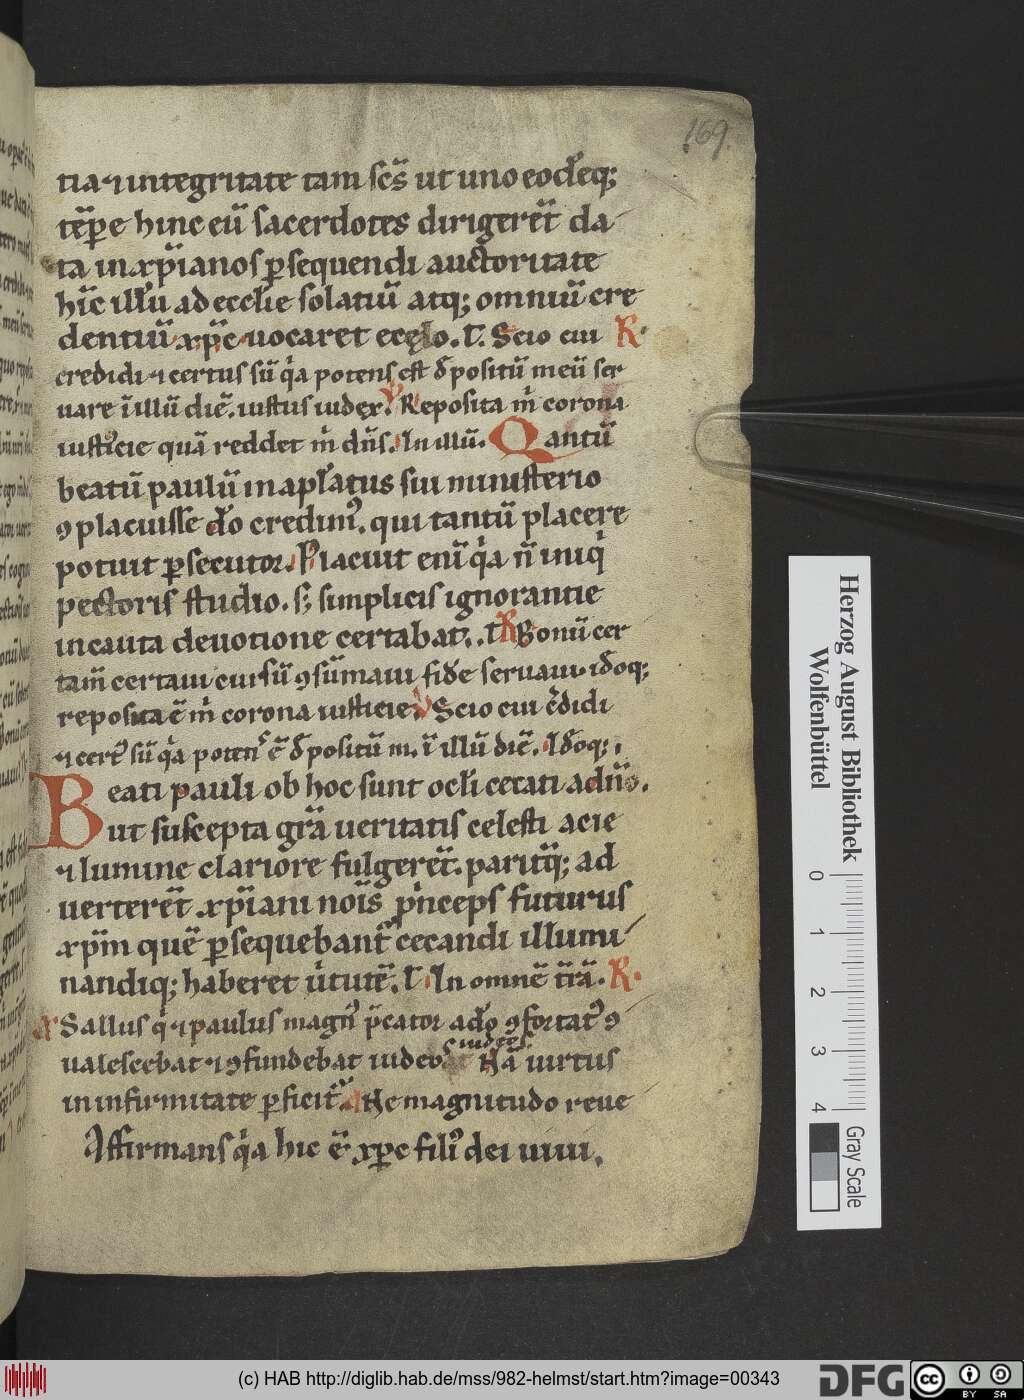 169.
tia ⁊ integritate tam scs̄ ut uno eodeq;
tēp̄e hinc eū sacerdotes dirigerēt da
ta in xp̄ianos ꝑsequendi auctoritate
hīc illū ad eccl̄ie solatiū atq; omniū cre
dentiū xp̄c uocaret ecęlo. L. Scio cui R
credidi ⁊ certus sū q̇a potens est d̄positū meū ser
uare ī illū diē. iustus iudex. V Reposita m̄ corona
iusticie quā reddet m̄ dn̄s. In illū. Qantū
beatū paulū in apl̄atus sui ministerio
ꝯplacuisse do credimꝰ. qui tantū placere
potuit ꝑsecutor. Placuit enī q̇a n̄ iniq̇
pectoris studio. s; simplicis ignorantie
incauta deuotione certabat. L R Bonū cer
tam̄ certaui cursū ꝯsūmaui fide seruaui idoq;
reposita ē m̄ corona iusticie. V Scio cui c̄didi
⁊ certꝰ sū q̇a potens ē d̄positū m. ī illū diē. Idoq;.
Beati pauli ob hoc sunt ocl̄i cecati ad
ut suscepta grā ueritatis celesti acie
⁊ lumine clariore fulgerēt. paritq̄; ad
uerterēt xp̄iani nois̄ pͥnceps futurus
xp̄m quē ꝑsequebant᷑ cecandi illumi
nandiq; haberet u̇tutē. L In omnē t̄rā. R
Sallus q̇ ⁊ paulus magnꝰ p̄cator ado ꝯfortatꝰ ꝯ
iudeos.
ualescebat ⁊ ꝯfundebat iudeos Nā uirtus
in infirmitate ꝑficit᷑ Ne magnitudo reue
Affirmans q̇a hic ē xp̄c filiꝰ dei uiui.
Herzog August Bibliothek
Wolfenbüttel
0 1 2 3 4
Gray Scale
(c) HAB http://diglib.hab.de/mss/982-helmst/start.htm?image=00343
DFG
cc BY SA